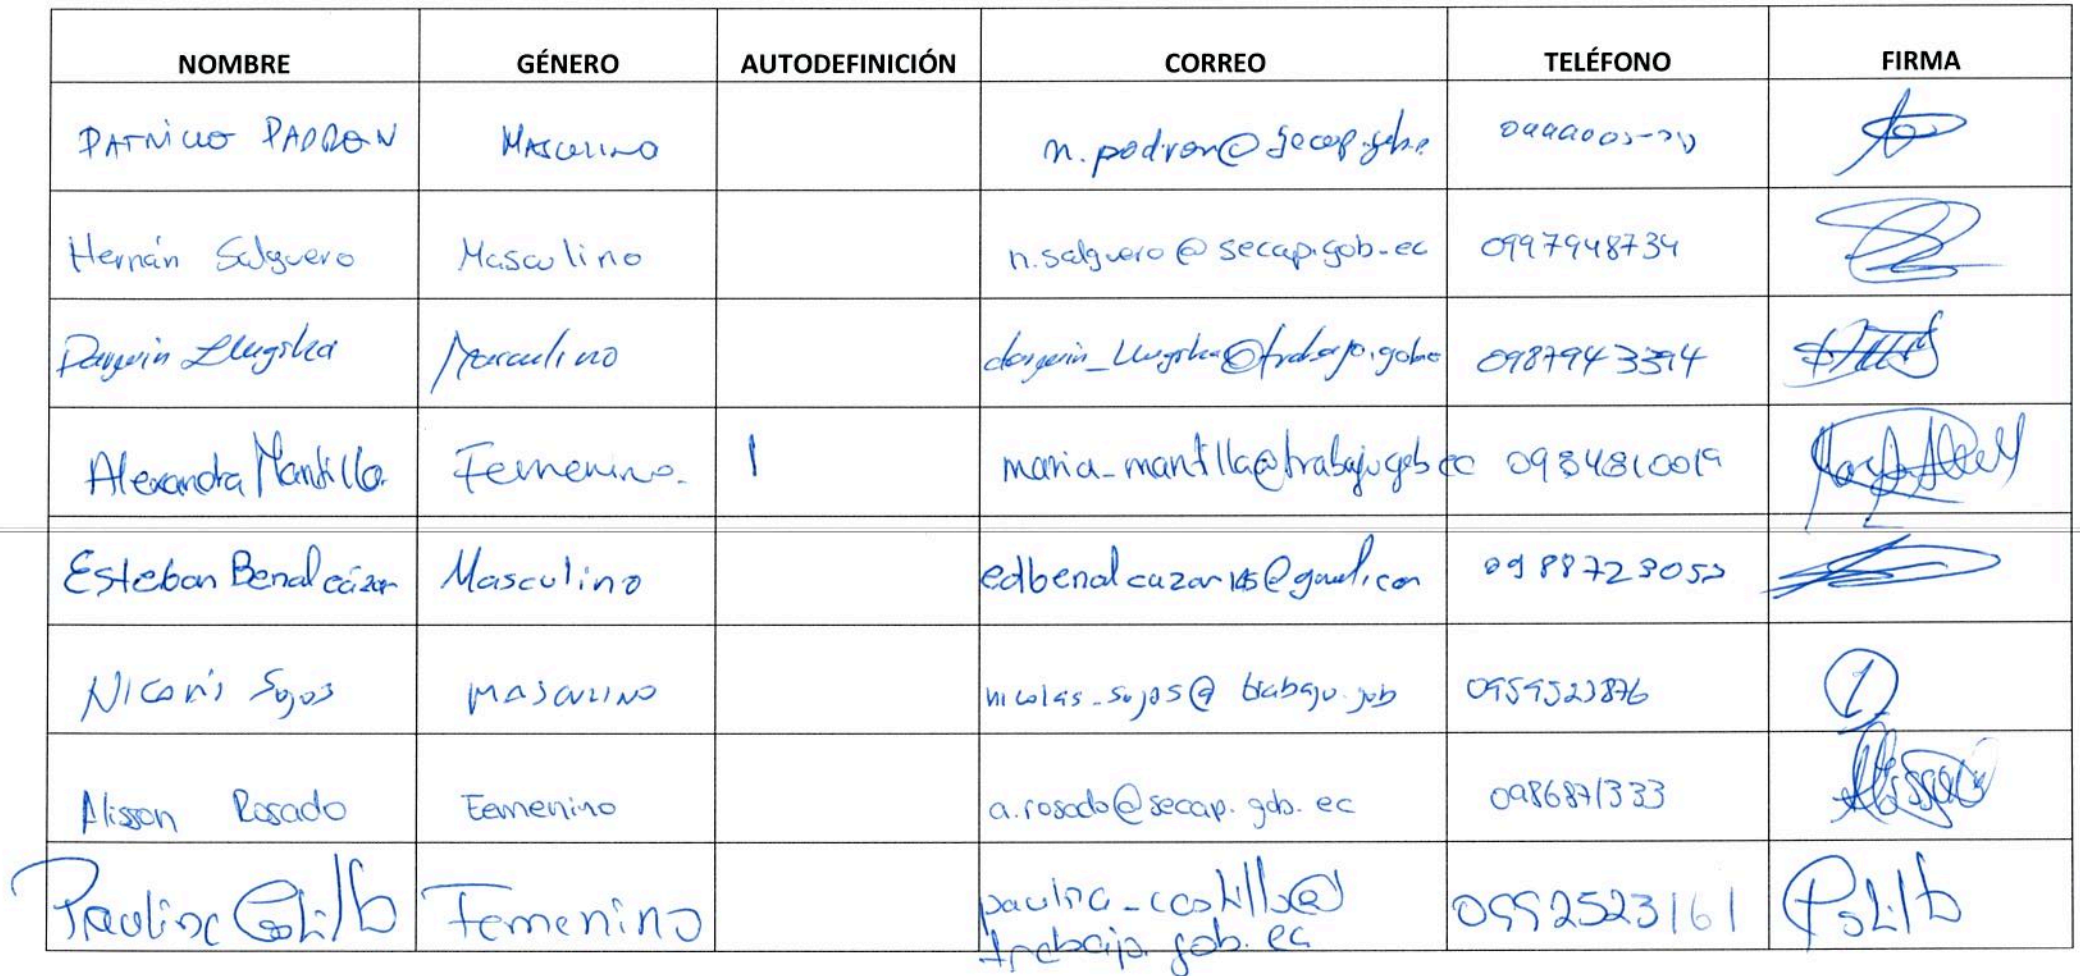 NOMBRE GÉNERO AUTODEFINICIÓN CORREO TELÉFONO FIRMA
PATRICIO PADRON MASCULINO n.padron@secap.gob.e
Hernán Salguero Masculino n.salguero@secap.gob.ec 0997948734
Llugsha Masculino 0987943394
Alexandra Mantilla. Femenino. maria_mantilla@trabajo.gob ec 0984810019
Esteban Benalcázar Masculino edbenalcazar105@gmail.com
Sojos MASCULINO nicolas_sojos@trabajo.gob 0959523876
Alisson Rosado Femenino a.rosado@secap.gob.ec 0986871333
Paulina Castillo Femenino paulina_castillo@ 0995253161
trabajo.gob.ec